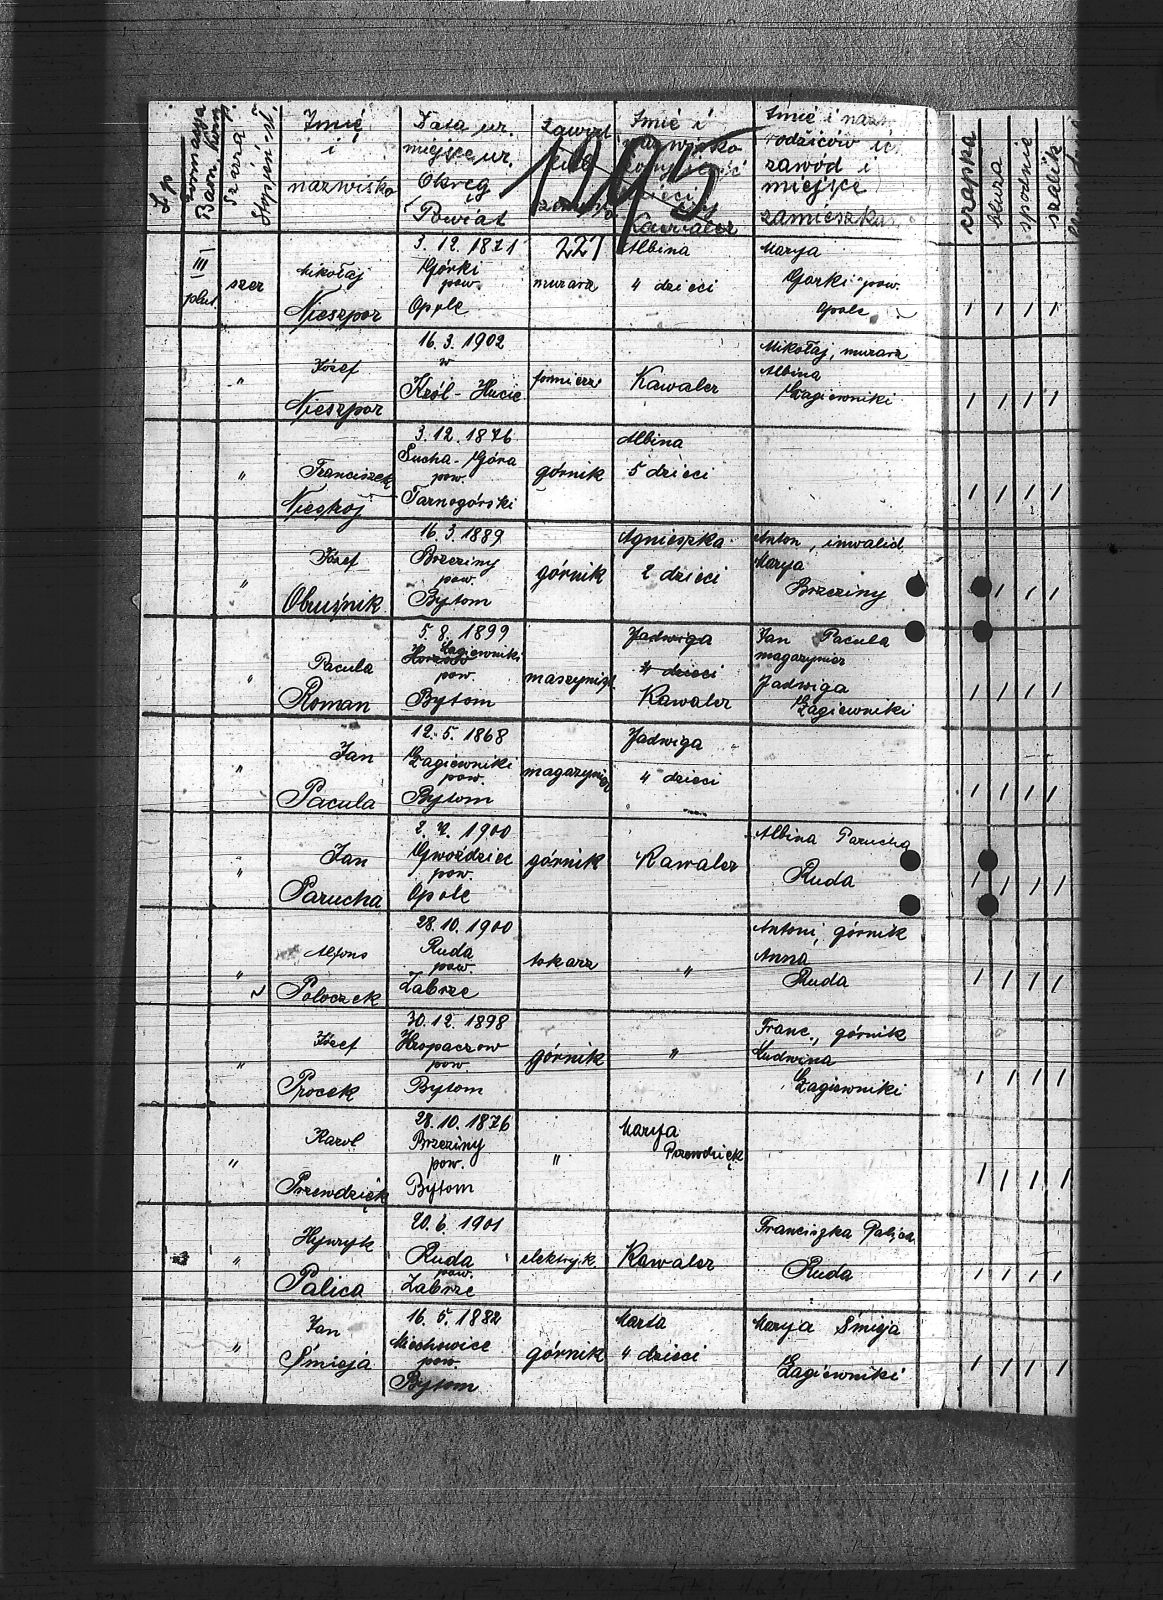 L.p.
Formacya
Baon. Komp.
Szarża
Stopień sł.
Imię
i
nazwisko
Data ur.
miejsce ur.
Okręg
Powiat
Zawód
Imię i
nazwisko
Kawaler
Imię i nazw.
rodziców ic
zawód i
miejsce
zamieszka
czapka
bluza
spodnie
szalik
1995
227
III
plut.
szer
Mikołaj
Nieszpor
3. 12. 1871
Górki
pow.
Opole
murarz
Albina
4 dzieci
Marya
Gorki pow.
Opole
/ / / /
"
Józef
Nieszpor
16. 3. 1902
w
Król-Hucie
formierz
Kawaler
Mikołaj, murarz
Albina
Łagiewniki
/ / / /
"
Franciszek
Niestroj
3. 12. 1876
Sucha-Góra
pow.
Tarnogórski
górnik
Albina
5 dzieci
/ / / /
"
Józef
Obruśnik
16. 3. 1889
Brzeziny
pow.
Bytom
górnik
Agnieszka
2 dzieci
Anton, inwalid
Marya
Brzeziny
/ / / /
"
Pacula
Roman
5. 8. 1899
Łagiewniki
pow.
Bytom
maszynist.
Jadwiga
4 dzieci
Kawaler
Jan Pacula
magazynier
Jadwiga
Łagiewniki
/ / / /
"
Jan
Pacula
12. 5. 1868
Łagiewniki
pow.
Bytom
magazynier
Jadwiga
4 dzieci
/ / / /
"
Jan
Parucha
1900
Gwoździec
pow.
Opole
górnik
Kawaler
Albina Parucha
Ruda
/ / / /
"
Alfons
Poloczek
28. 10. 1900
Ruda
pow.
Zabrze
tokarz
"
Antoni, górnik
Anna
Ruda
/ / / /
"
Józef
Procek
30. 12. 1898
Hropaczow
pow.
Bytom
górnik
"
Franc., górnik
Ludwina
Łagiewniki
/ / / /
"
Karol
Przewdzięk
28. 10. 1876
Brzeziny
pow.
Bytom
"
Marya
Przewdzięk
/ / / /
"
Hynryk
Palica
20. 6. 1901
Ruda
pow.
Zabrze
elektryk.
Kawaler
Franciszka Palica
Ruda
/ / / /
"
Jan
Śmieja
16. 5. 1882
Miechowice
pow.
Bytom
górnik
Marta
4 dzieci
Marya Śmieja
Łagiewniki
/ / / /